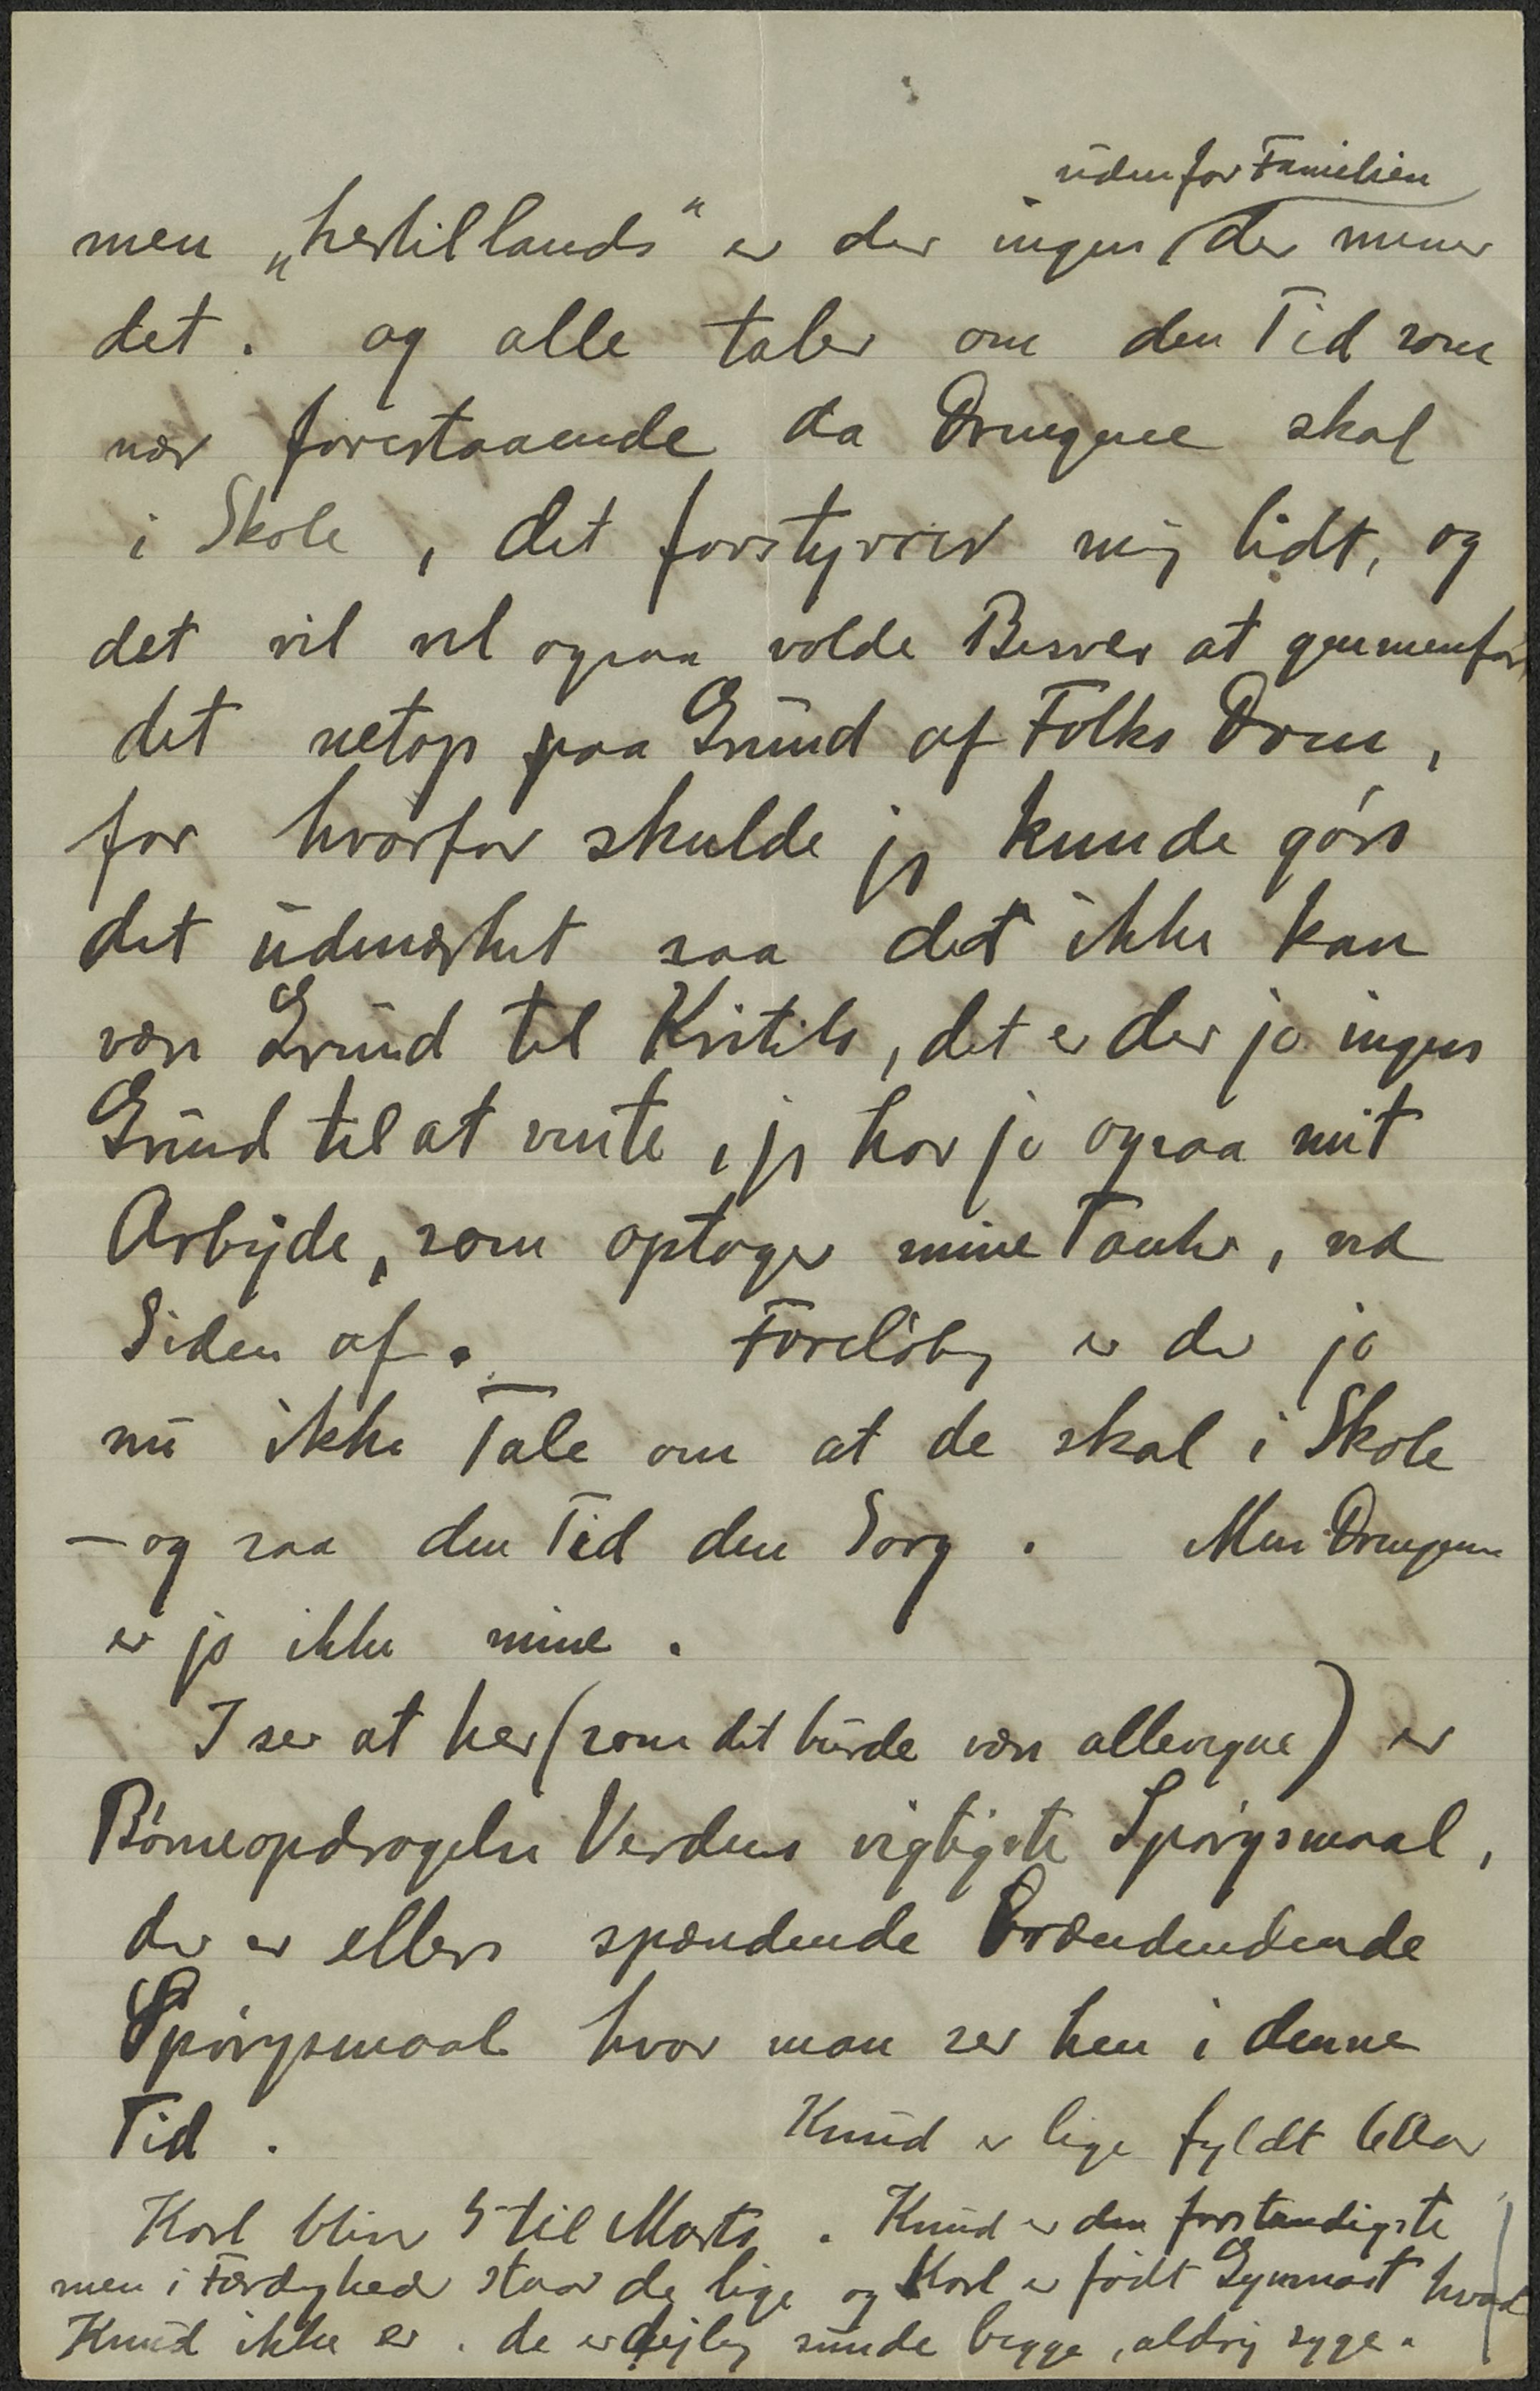 udenfor Familien
men „hertillands“ er der ingen der mener
det. og alle taler om den Tid som
nær forestaaende da Drengene skal
i Skole, det forstyrrer mig lidt, og
det vil vel ogsaa volde Besvær at gennemføre
det netop paa Grund af Folks Dom,
for hvorfor skulde jeg kunde gøre
det udmærket saa det ikke kan
være Grund til Kritik, det er der jo ingen
Grund til at vente, jeg har jo ogsaa mit
Arbejde, som optager mine Tanker, ved
Siden af. Foreløbig er der jo
nu ikke Tale om at de skal i Skole
– og saa den Tid den Sorg. Men Drengene
er jo ikke mine.
I ser at her (som det burde være allevegne) er
Børneopdragelse Verdens vigtigste Spørgsmaal,
der er ellers spændende Brændendende
Spørgsmaal hvor man ser hen i denne
Tid. Knud er lige fyldt 6 Aar
Karl bliver 5 til Marts. Knud er den forstandigste
men i Færdighed staar de lige og Karl er født Gymnast hvad
Knud ikke er. de er dejlig sunde begge, aldrig syge.